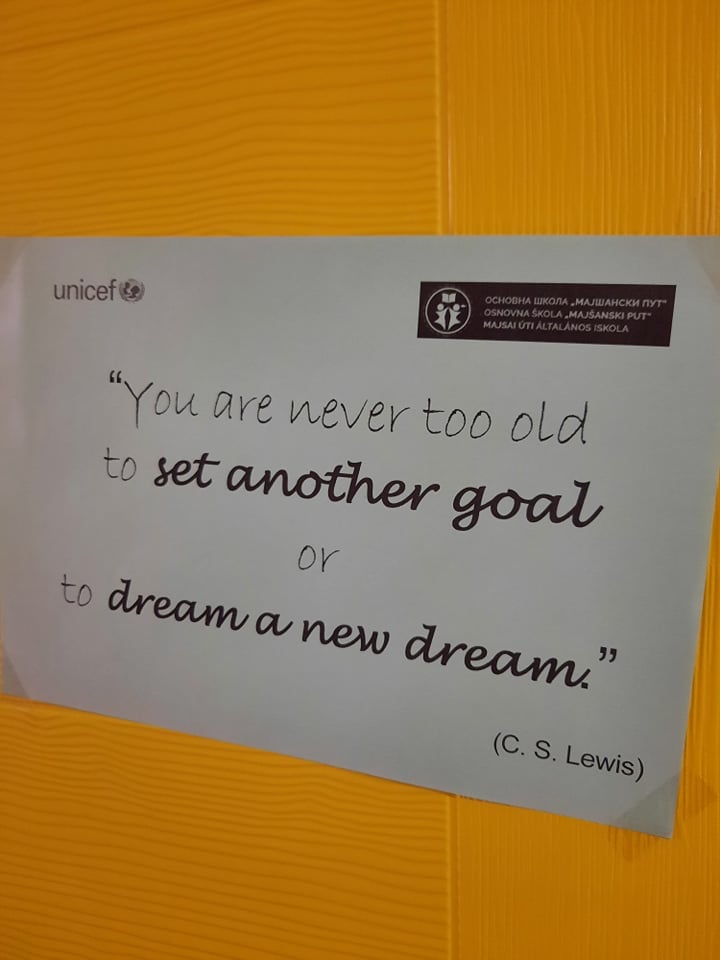 unicef
ОСНОВНА ШКОЛА „МАЈШАНСКИ ПУТ“
OSNOVNA ŠKOLA „MAJŠANSKI PUT“
MAJSAI ÚTI ÁLTALÁNOS ISKOLA
“You are never too old
to set another goal
or
to dream a new dream.”
(C. S. Lewis)